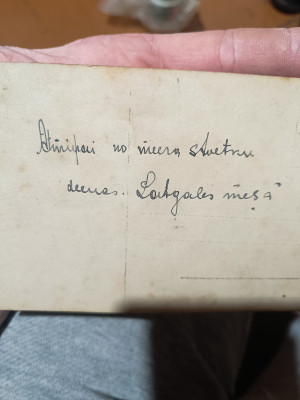 Atmiņai no meera swetku
deenas. Latgales meşā